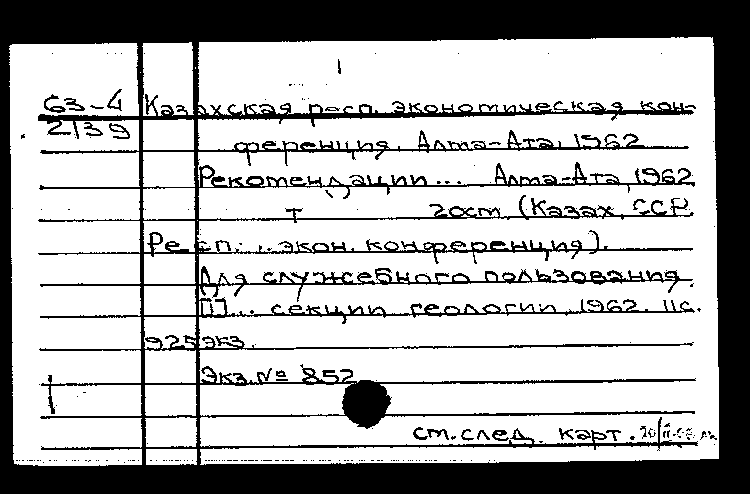 63-4 Казахская респ. экономическая кон-
2139
ференция. Алма-Ата, 1962
Рекомендации... Алма-Ата, 1962
т 20см. (Казах. ССР.
Респ. .. экон. конференция).
Для служебного пользования.
[]... секции геологии, 1962. 11с.
925экз.
Экз.№ 852
см.след. карт.